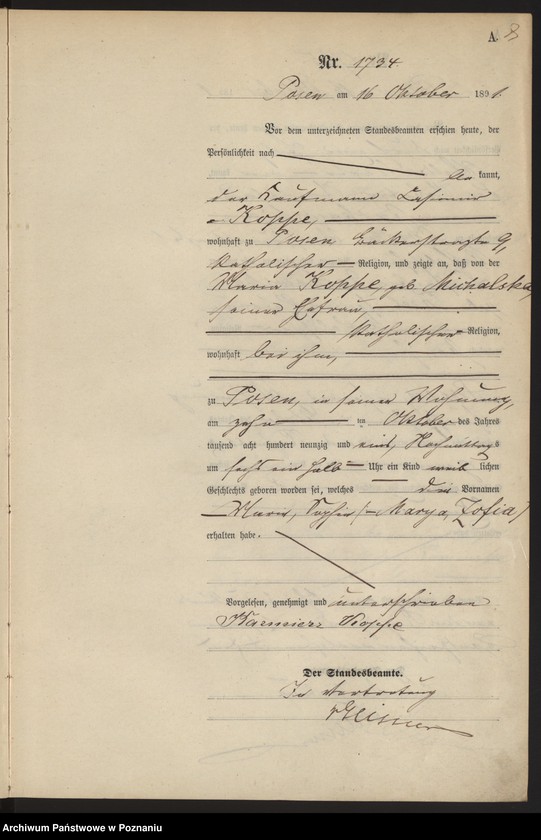 A. 8
Nr. 1734.
Posen am 16 Oktober 1891.
Vor dem unterzeichneten Standesbeamten erschien heute, der
Persönlichkeit nach
be kannt,
der Kaufmann Casimir
Koppe,
wohnhaft zu Posen Bäckerstraße 9,
katholischer Religion, und zeigte an, daß von der
Maria Koppe, geb. Michalska,
seiner Ehefrau,
katholischer Religion,
wohnhaft bei ihm,
zu Posen, in seiner Wohnung,
am zehn ten Oktober des Jahres
tausend acht hundert neunzig und eins, Nachmittags
um sechs ein halb Uhr ein Kind weib lichen
Geschlechts geboren worden sei, welches die Vornamen
Maria, Sophia (= Marya, Zofia)
erhalten habe.
Vorgelesen, genehmigt und unterschrieben
Kazimierz Koppe
Der Standesbeamte.
In Vertretung
Archiwum Państwowe w Poznaniu